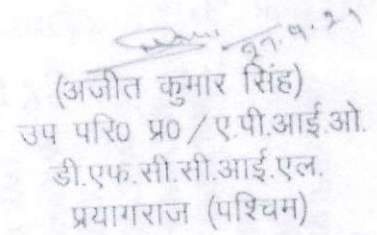 27.9.21
(अजीत कुमार सिंह)
उप परि0 प्र0 / ए.पी.आई.ओ.
डी.एफ.सी.सी.आई.एल.
प्रयागराज (पश्चिम)